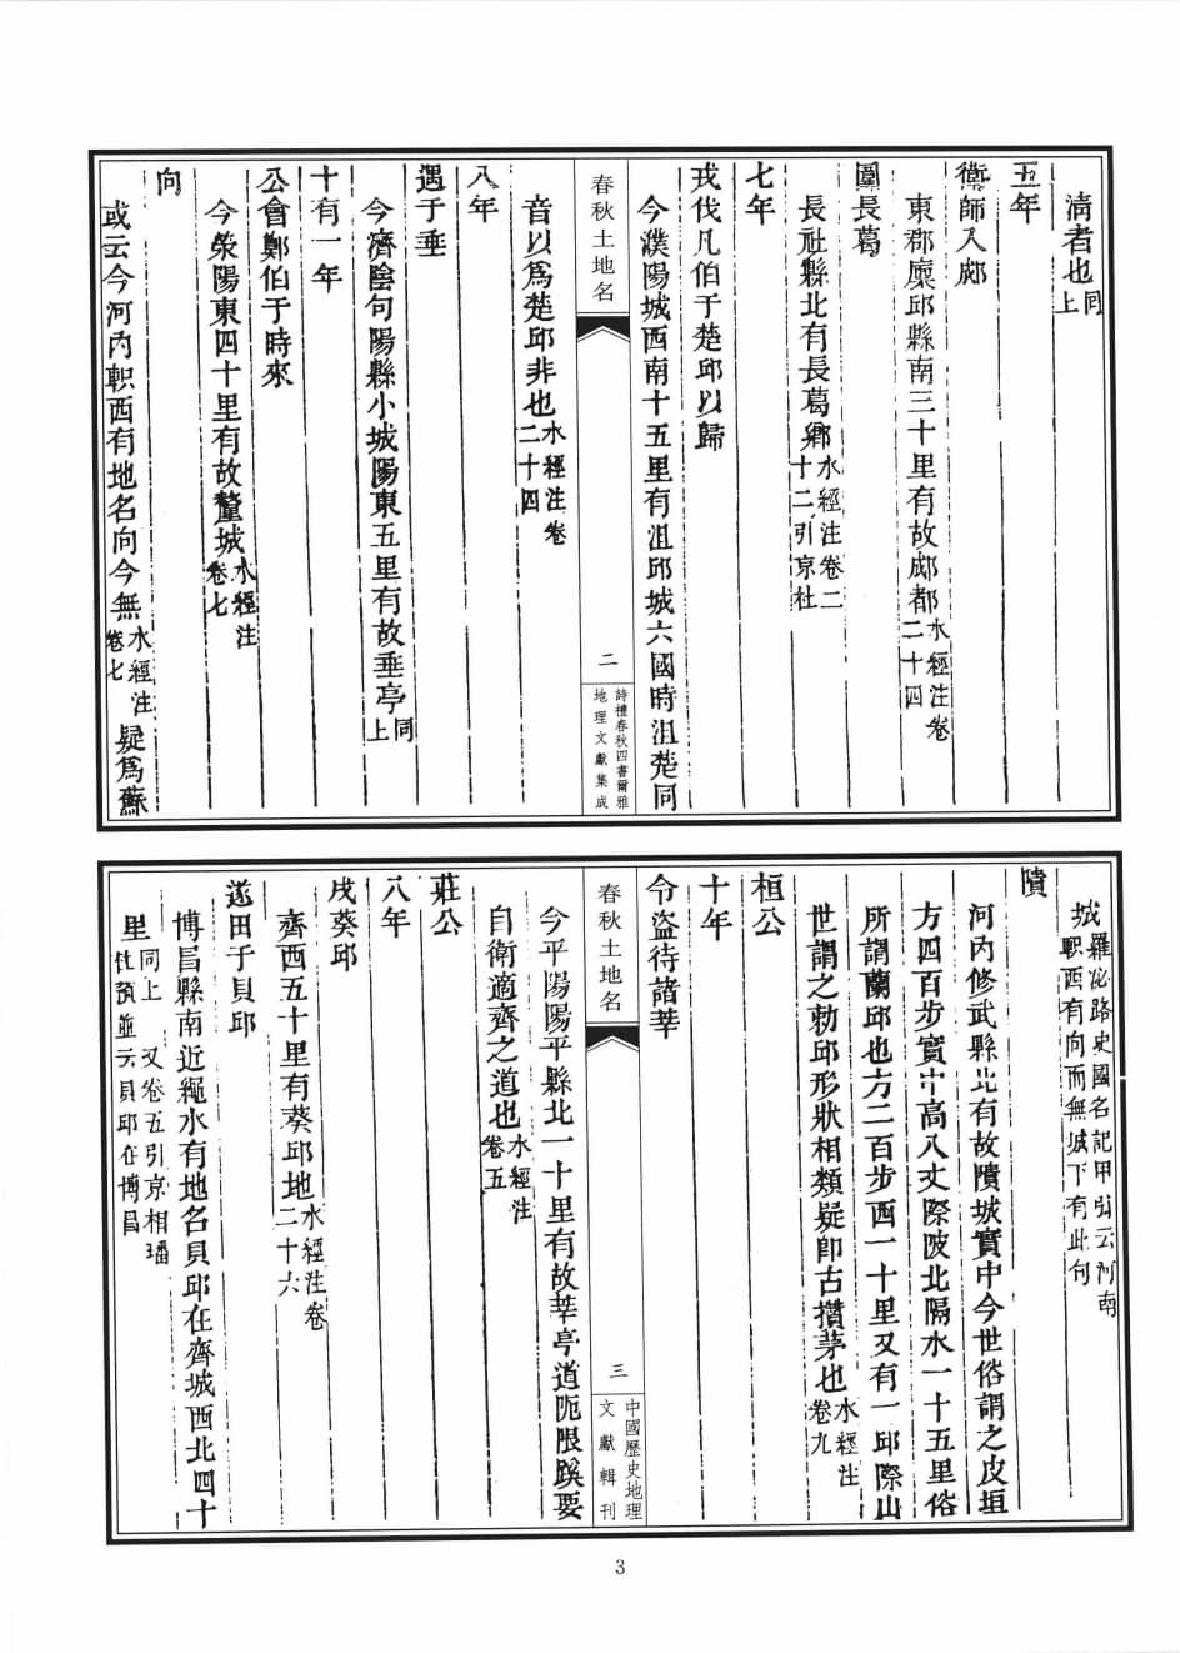 清者也同上
五年
衛師入郕
東郡廩邱縣南三十里有故郕都水經注卷二十四
圍長葛
長社縣北有長葛鄉水經注卷二十二引京杜
七年
戎伐凡伯于楚邱以歸
今濮陽城西南十五里有沮邱城六國時沮楚同
春秋土地名
二
詩禮春秋四書爾雅
地理文獻集成
音以爲楚邱非也水經注卷二十四
八年
遇于垂
今濟陰句陽縣小城陽東五里有故垂亭同上
十有一年
公會鄭伯于時來
今滎陽東四十里有故釐城水經注卷七
向
或云今河內軹西有地名向今無水經注卷七疑爲蘇
城羅泌路史國名記甲引云河南軹西有向而無城下有此句
隤
河內修武縣北有故隤城實中今世俗謂之皮垣
方四百步實中高八丈際陂北隔水一十五里俗
所謂蘭邱也方二百步西一十里又有一邱際山
世謂之勅邱形狀相類疑卽古攢茅也水經注卷九
桓公
十年
令盜待諸莘
春秋土地名
三
中國歷史地理
文獻輯刊
今平陽陽平縣北一十里有故莘亭道阨限蹊要
自衛適齊之道也水經注卷五
莊公
八年
戍葵邱
齊西五十里有葵邱地水經注卷二十六
遂田于貝邱
博昌縣南近繩水有地名貝邱在齊城西北四十
里同上又卷五引京相璠杜預並云貝邱在博昌
3